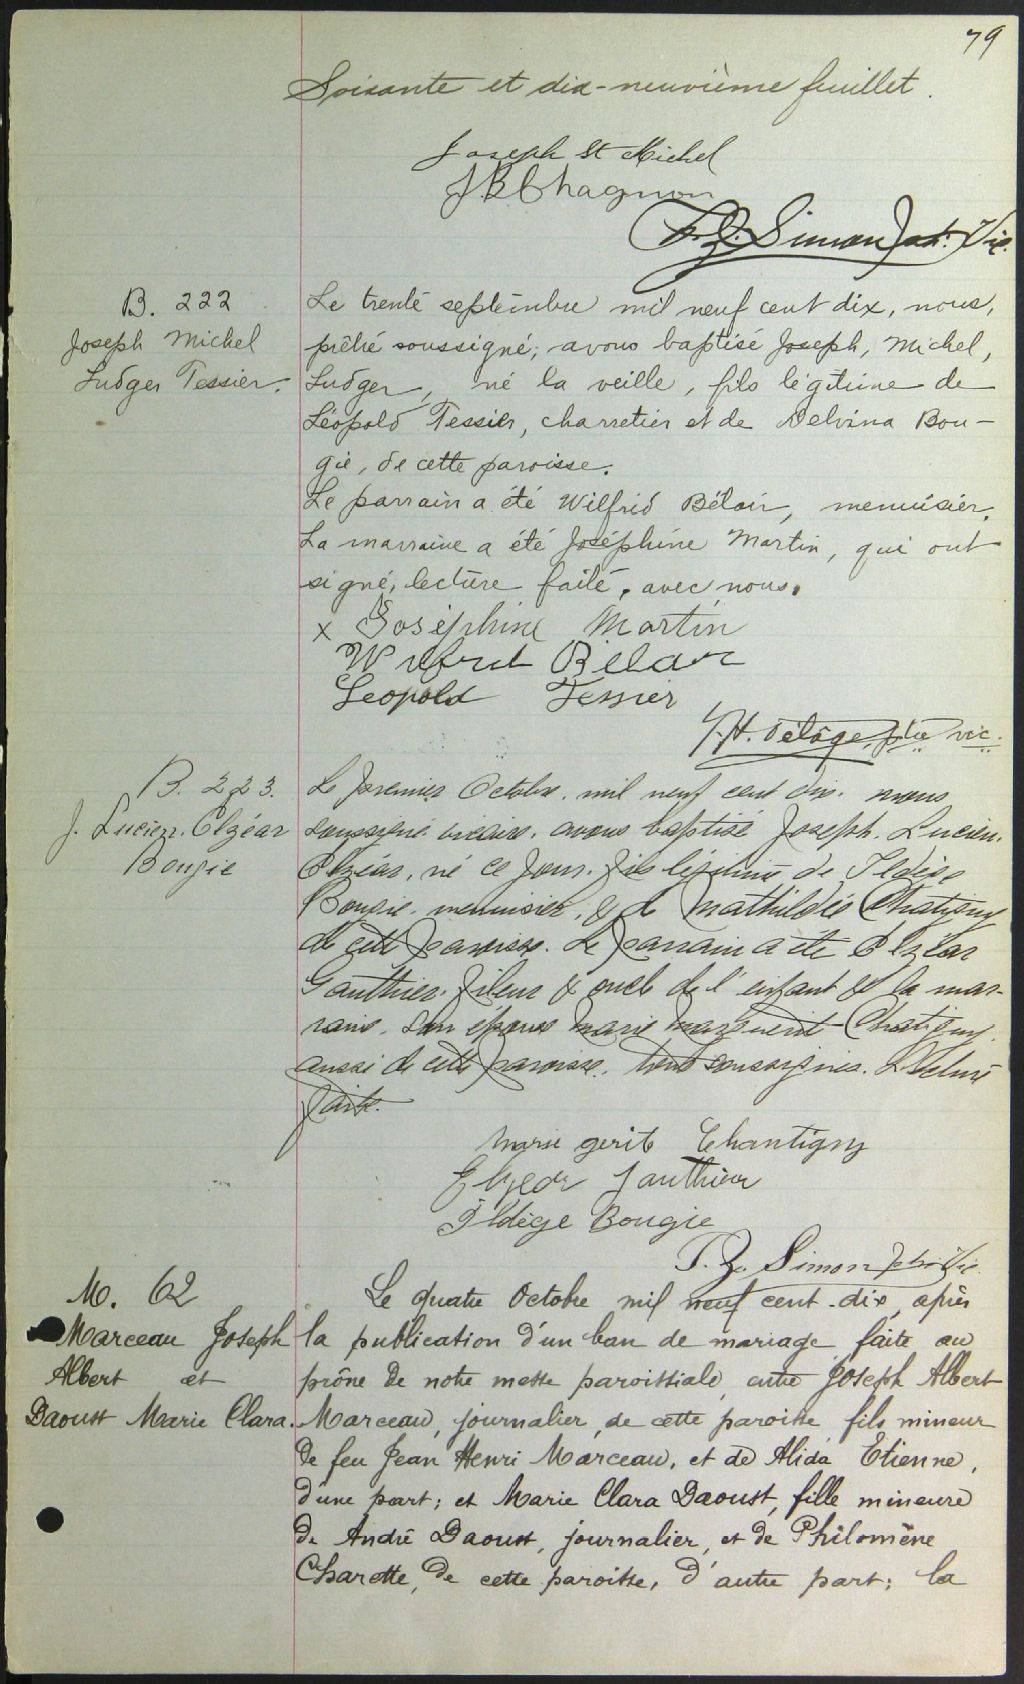 79
Soixante et dix-neuvième feuillet.
Joseph St Michel
J B Chagnon
T. Z. Simon Ptre. Vic.
B. 222
Joseph Michel
Ludger Tessier.
Le trente septembre mil neuf cent dix, nous,
prêtre soussigné, avons baptisé Joseph, Michel,
Ludger, né la veille, fils légitime de
Léopold Tessier, charretier et de Delvina Bou-
gie, de cette paroisse.
Le parrain a été Wilfrid Bélair, menuisier.
La marraine a été Joséphine Martin, qui ont
signé, lecture faite, avec nous.
x Joséphine Martin
Wilfrid Bélair
Leopold Tessier
J. H. Délâge, ptre vic.
B. 223.
J. Lucien. Elzéar
Bougie
Le premier Octobre. mil neuf cent dix. nous
soussigné vicaire. avons baptisé Joseph. Lucien.
Elzéar, né ce jour. fils légitime de Ildège
Bougie. menuisier, & de Mathildée Chatigny
de cette paroisse. Le parrain a été Elzéar
Gauthier. fileur & oncle de l'enfant & la mar-
raine. son épouse Marie Marguerite Chatigny.
aussi de cette paroisse. tous soussignés. Lecture
faite.
Marie gerite Chantigny
Elzear Gauthier
Ildège Bougie
T. Z. Simon Ptre Vic.
M. 62
Marceau Joseph
Albert et
Daoust Marie Clara.
Le quatre Octobre mil neuf cent-dix, après
la publication d'un ban de mariage faite au
prône de notre messe paroissiale, entre Joseph Albert
Marceau, journalier, de cette paroisse, fils mineur
de feu Jean Henri Marceau, et de Alida Etienne,
d'une part; et Marie Clara Daoust, fille mineure
de André Daoust, journalier, et de Philomène
Charette, de cette paroisse, d'autre part; la